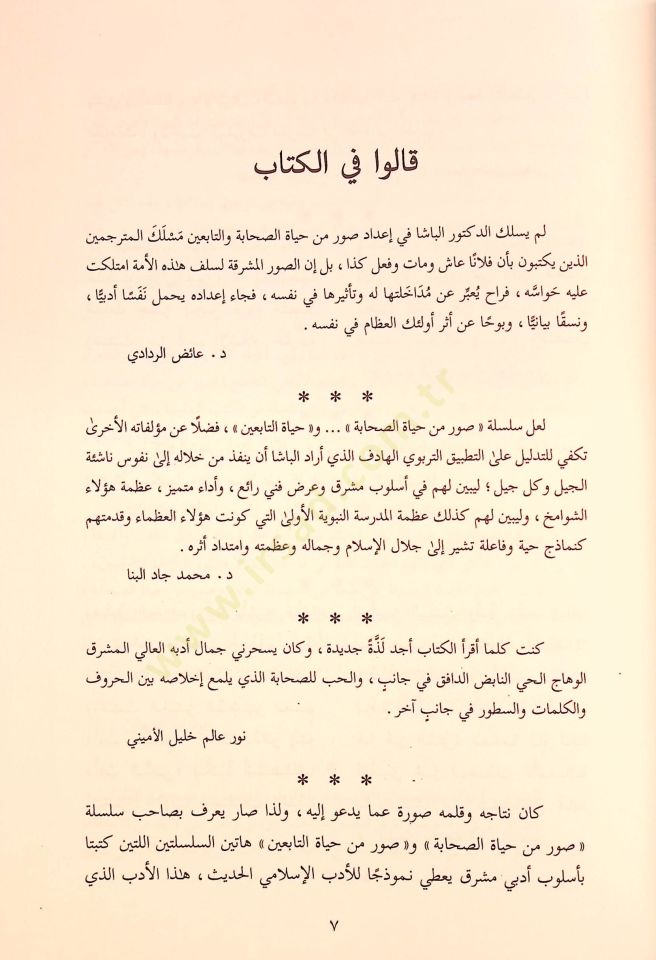 قالوا في الكتاب
لم يسلك الدكتور الباشا في إعداد صور من حياة الصحابة والتابعين مَسْلَكَ المترجمين
الذين يكتبون بأن فلانًا عاش ومات وفعل كذا ، بل إن الصور المشرقة لسلف هذه الأمة امتلكت
عليه حَواسَّه ، فراح يُعبِّر عن مُدَاخَلتها له وتأثيرها في نفسه ، فجاء إعداده يحمل نَفَسًا أدبيًّا ،
ونسقًا بيانيًّا ، وبوحًا عن أثر أولئك العظام في نفسه .
د. عائض الردادي
* * *
لعل سلسلة « صور من حياة الصحابة » ... و« حياة التابعين » ، فضلًا عن مؤلفاته الأخرىٰ
تكفي للتدليل علىٰ التطبيق التربوي الهادف الذي أراد الباشا أن ينفذ من خلاله إلىٰ نفوس ناشئة
الجيل وكل جيل ؛ ليبين لهم في أسلوب مشرق وعرض فني رائع ، وأداء متميز ، عظمة هؤلاء
الشوامخ ، وليبين لهم كذلك عظمة المدرسة النبوية الأولىٰ التي كونت هؤلاء العظماء وقدمتهم
كنماذج حية وفاعلة تشير إلىٰ جلال الإسلام وجماله وعظمته وامتداد أثره .
د. محمد جاد البنا
* * *
كنت كلما أقرأ الكتاب أجد لَذَّةً جديدة ، وكان يسحرني جمال أدبه العالي المشرق
الوهاج الحي النابض الدافق في جانبٍ ، والحب للصحابة الذي يلمع إخلاصه بين الحروف
والكلمات والسطور في جانبٍ آخر .
نور عالم خليل الأميني
* * *
كان نتاجه وقلمه صورة عما يدعو إليه ، ولذا صار يعرف بصاحب سلسلة
« صور من حياة الصحابة » و« صور من حياة التابعين » هاتين السلسلتين اللتين كتبتا
بأسلوب أدبي مشرق يعطي نموذجًا للأدب الإسلامي الحديث ، هذا الأدب الذي
٧